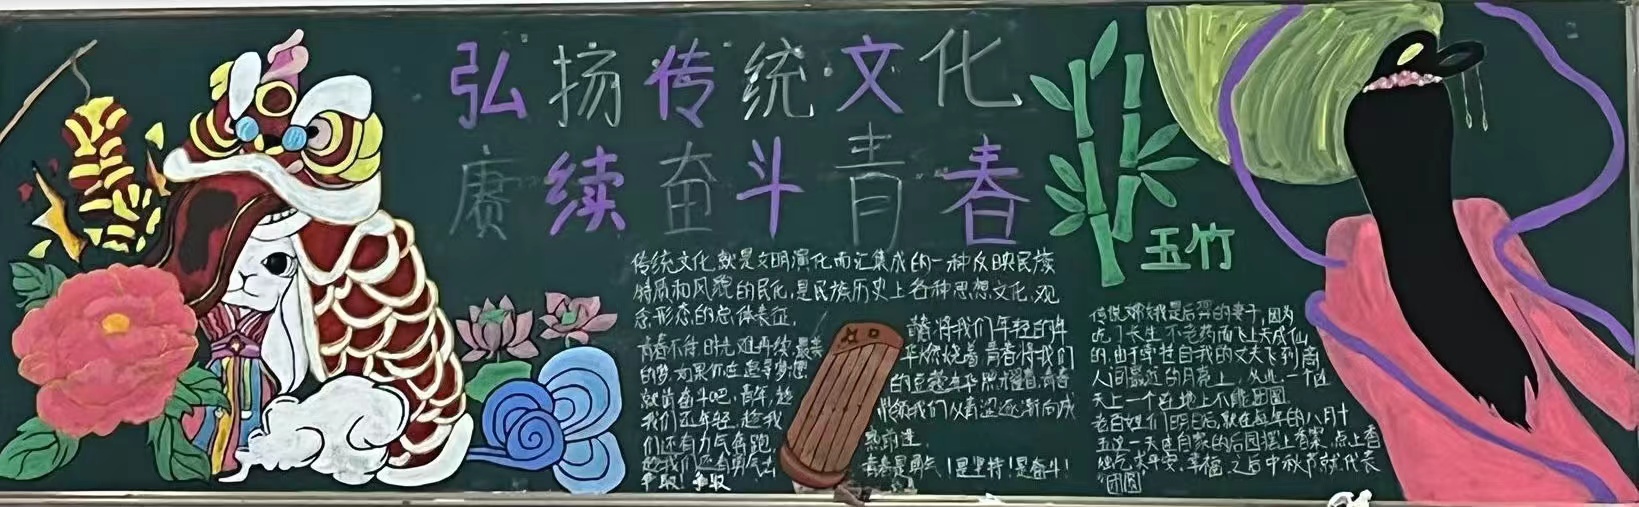 弘扬传统文化
赓续奋斗青春
玉竹
传统文化就是文明演化而汇集成的一种反映民族
特质和风貌的民化,是民族历史上各种思想文化、观
念形态的总体表征。
青春不待,时光难再续,最美
的梦,如果你在追寻梦想
就前奋斗吧,青年,趁
我们还年轻,趁我
们还有力气奔跑
趁我们还有勇气去
争取!争取
青春将我们年轻的年
华燃烧着 青春将我们
的点缀年华照耀着,青春
带领我们从青涩逐渐向成
熟前进。
青春是勇气!是坚持!是奋斗!
传说嫦娥是后羿的妻子,因为
吃了长生不老药而飞上天成仙
的,由于牵挂自我的丈夫飞到离
人间最近的月亮上,从此一个在
天上一个在地上不能团圆
老百姓们明白后,就在每年的八月十
五这一天在自家的后园摆上香案,点上香
烛乞求平安、幸福,之后中秋节就代表
“团圆”